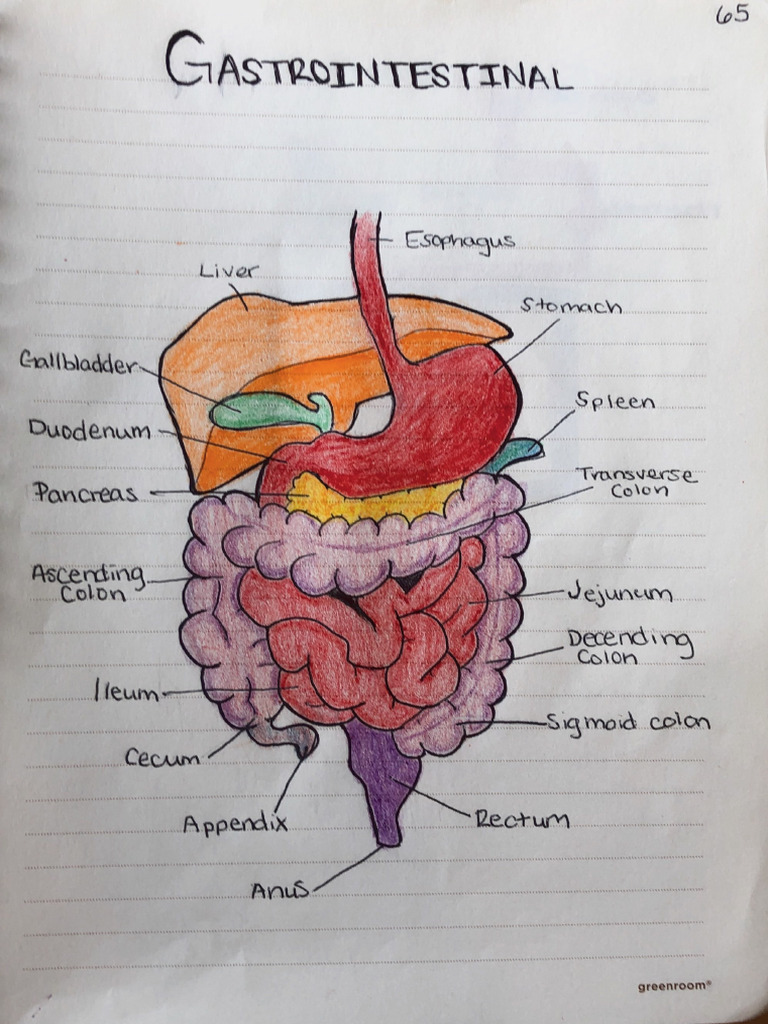 65
GASTROINTESTINAL
Esophagus
Liver
Stomach
Gallbladder
Spleen
Duodenum
Transverse
Colon
Pancreas
Ascending
Colon
Jejunum
Decending
Colon
Ileum
Sigmoid colon
Cecum
Appendix
Rectum
Anus
greenroom®